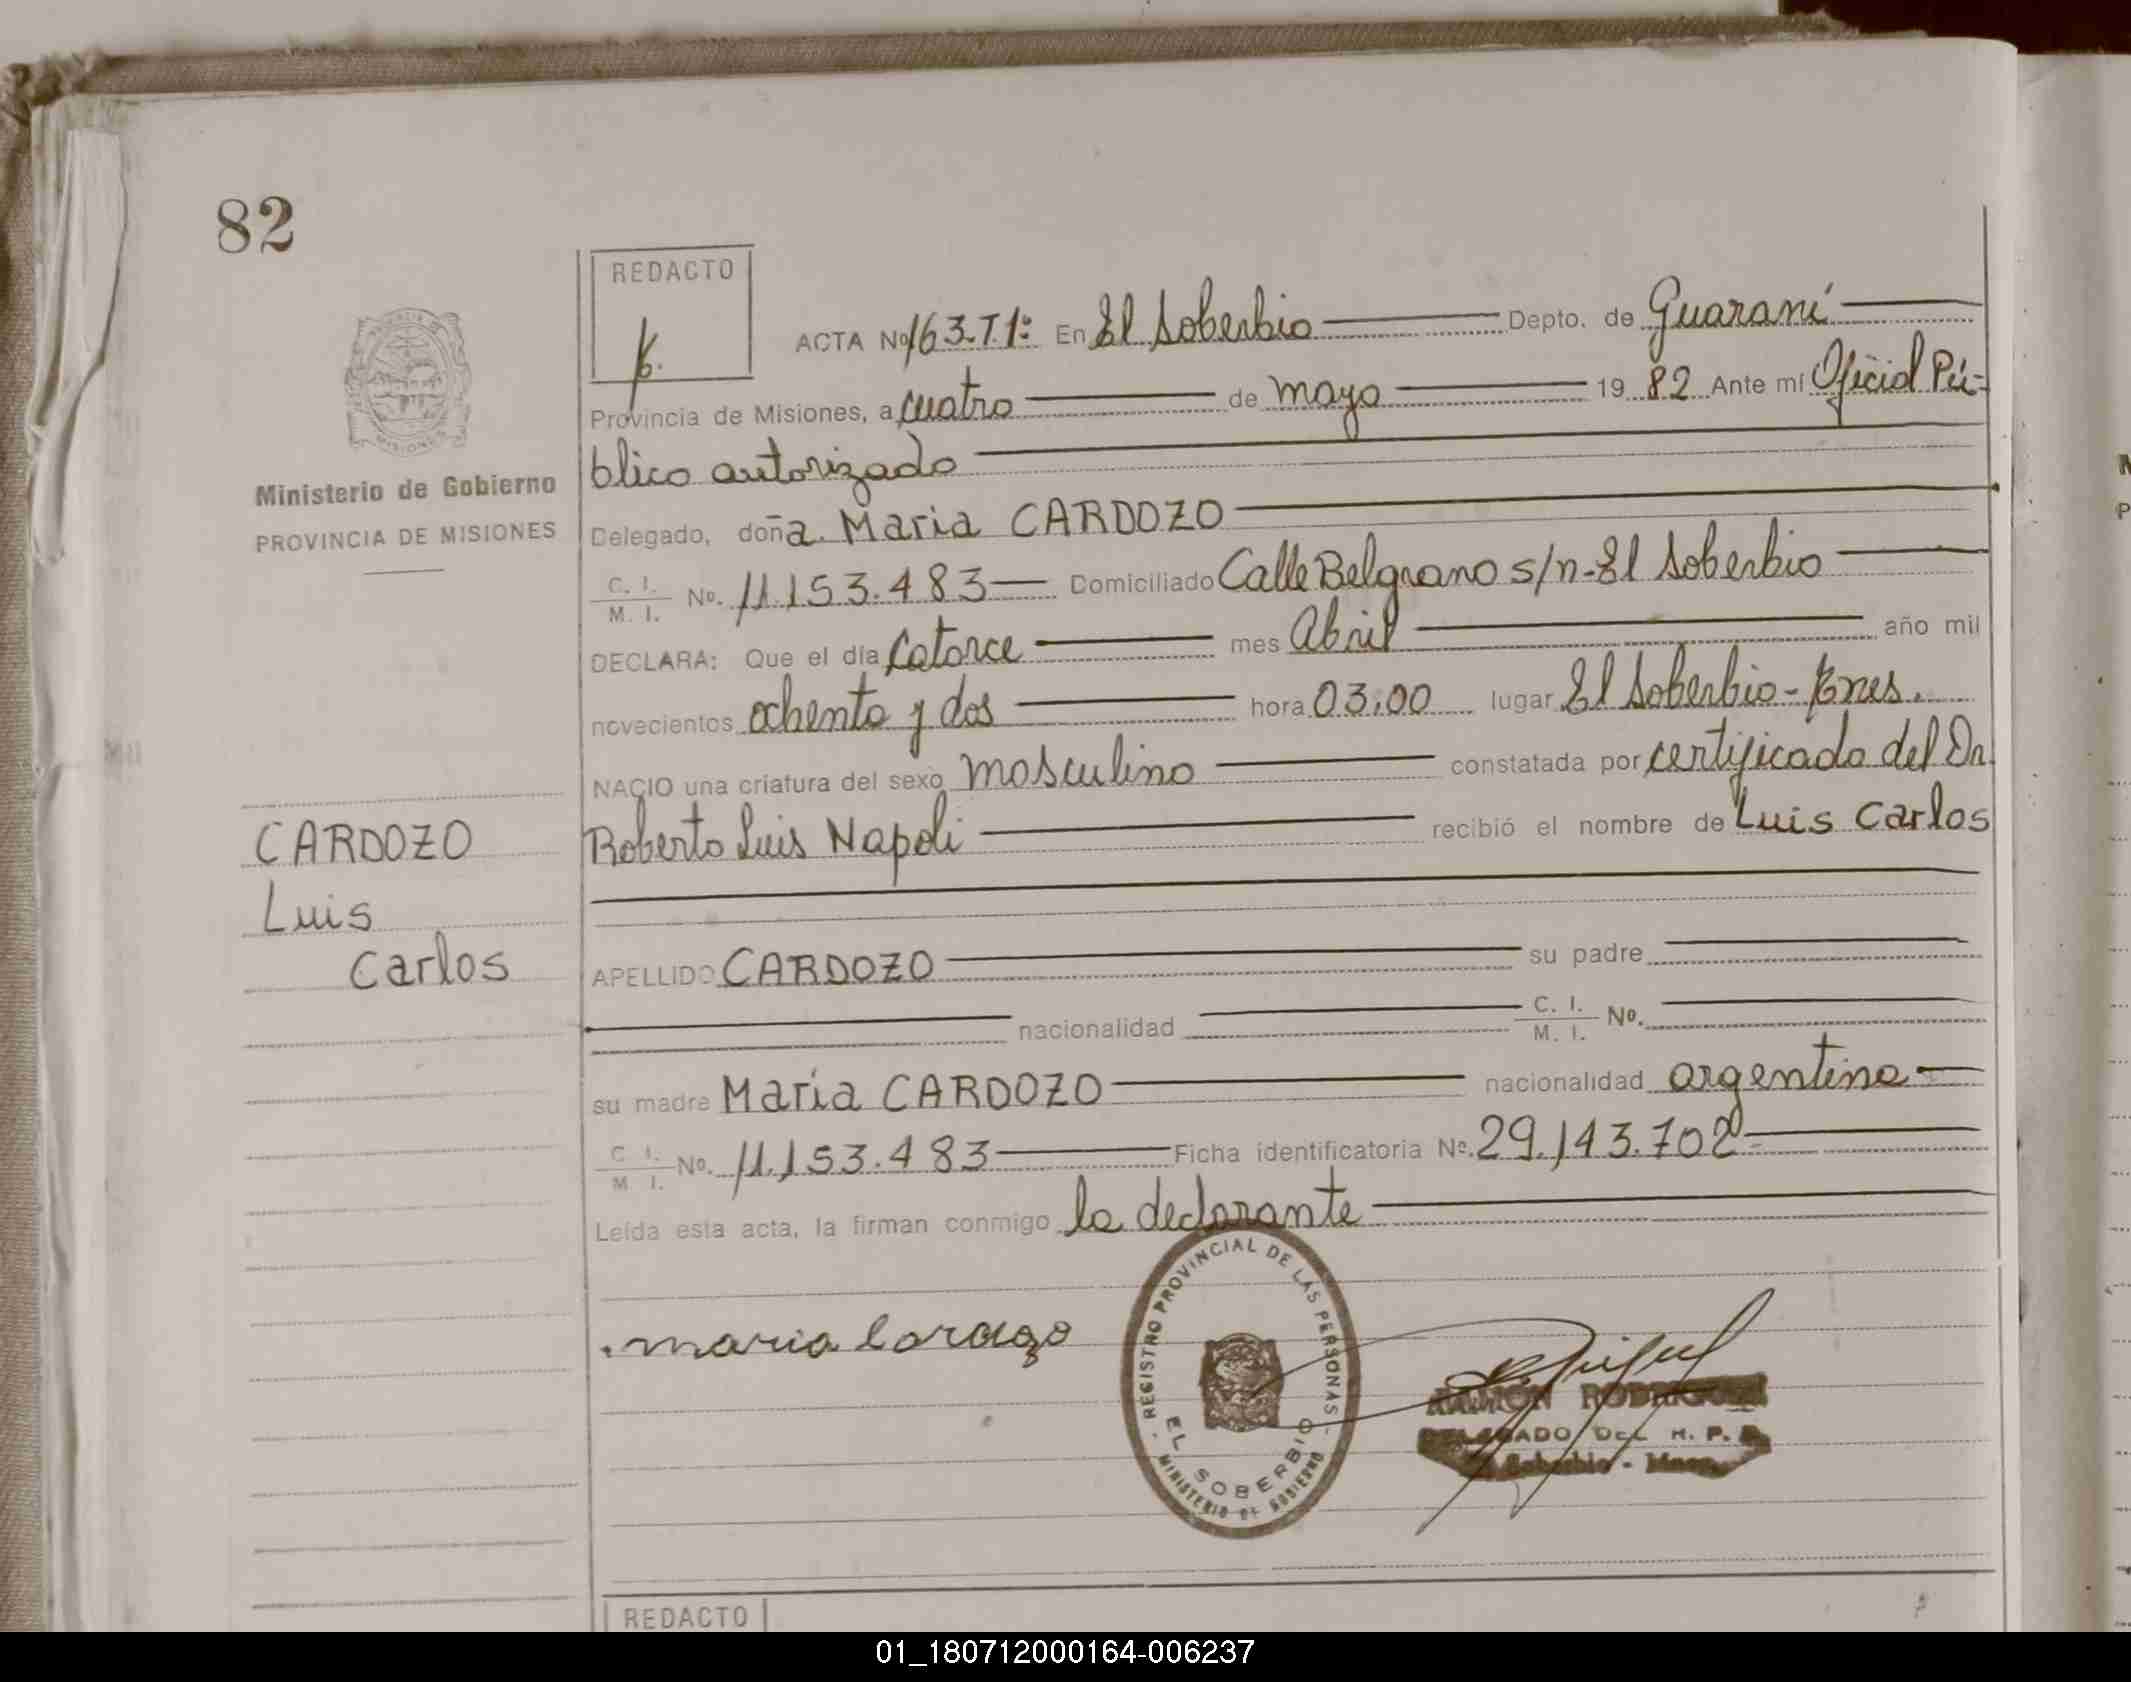 82
REDACTO
ACTA Nº 163.T.1º En El Soberbio Depto. de Guaraní
Provincia de Misiones, a cuatro de mayo 19 82 Ante mí Oficial Pú-
blico autorizado
Ministerio de Gobierno
PROVINCIA DE MISIONES
Delegado, doña. Maria CARDOZO
C. I. / M. I. No. 11.153.483 Domiciliado Calle Belgrano s/n-El Soberbio
DECLARA: Que el día catorce mes Abril año mil
novecientos ochenta y dos hora 03:00 lugar El Soberbio-
NACIO una criatura del sexo masculino constatada por certificado del Dr.
CARDOZO
Luis
Carlos
Roberto Luis Napoli recibió el nombre de Luis Carlos
APELLIDO CARDOZO su padre
nacionalidad C. I. / M. I. No.
su madre Maria CARDOZO nacionalidad argentina
C. I. / M. I. No. 11.153.483 Ficha identificatoria Nº. 29.143.702
Leída esta acta, la firman conmigo la declarante
REGISTRO PROVINCIAL DE LAS PERSONAS
EL SOBERBIO
MINISTERIO DE GOBIERNO
RAMÓN RODRIGUEZ
DELEGADO DEL R. P. P.
El Soberbio - Mnes.
REDACTO
01_180712000164-006237